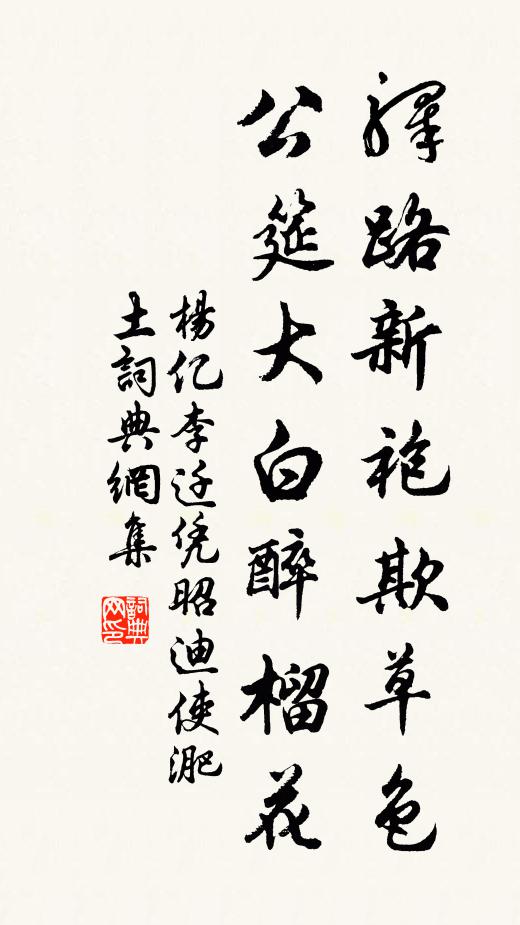 驿路新袍欺草色
公筵大白醉榴花
楊亿李迁凭昭迪使淝
土詞典網集
詞典
网印